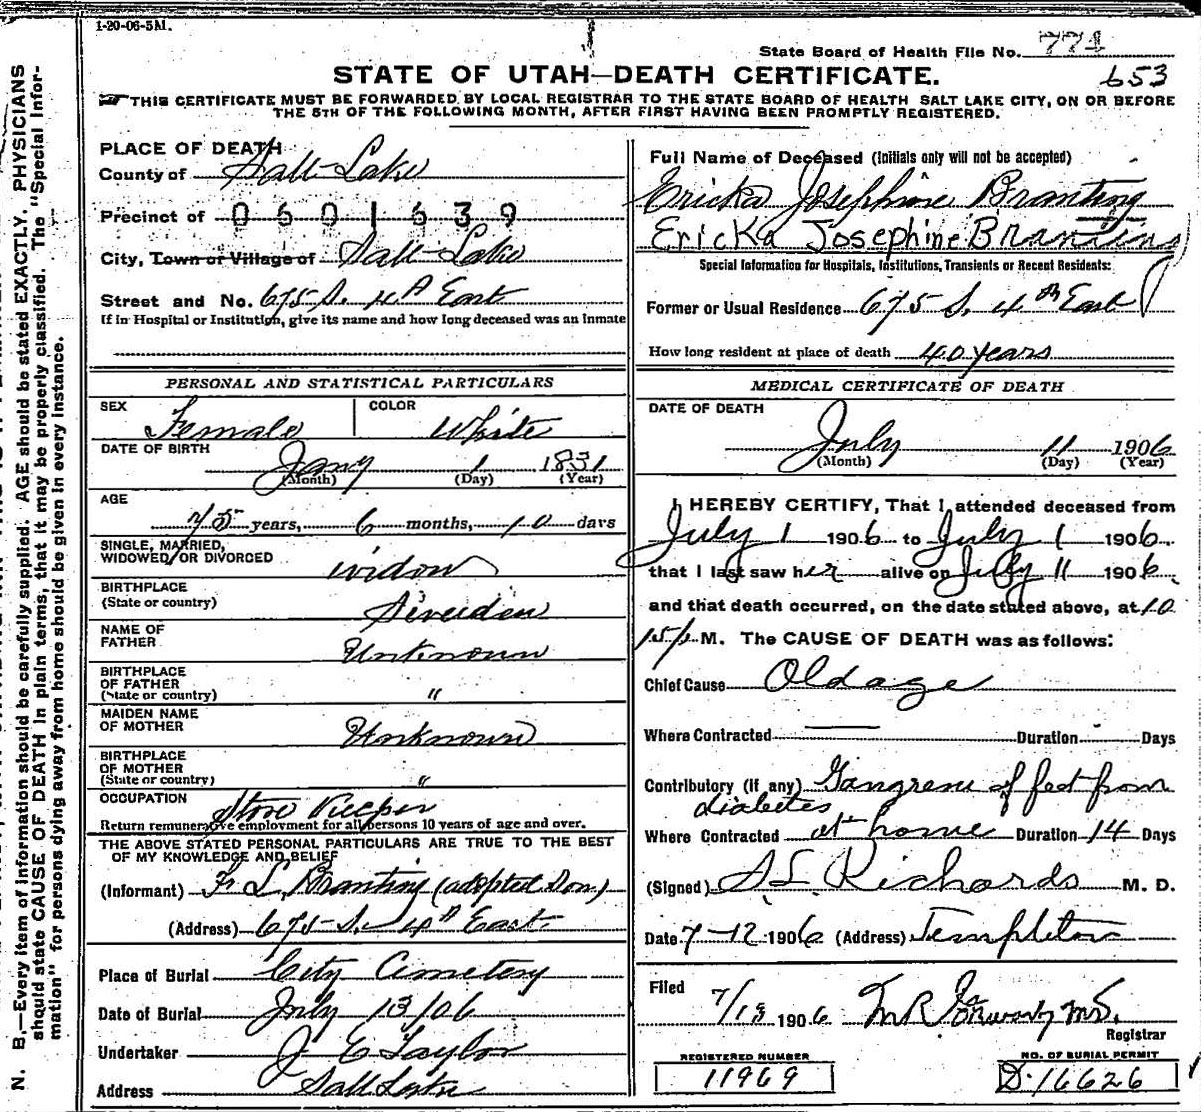 1-20-06-5M.
State Board of Health File No. 771
653
STATE OF UTAH—DEATH CERTIFICATE.
THIS CERTIFICATE MUST BE FORWARDED BY LOCAL REGISTRAR TO THE STATE BOARD OF HEALTH SALT LAKE CITY, ON OR BEFORE
THE 5TH OF THE FOLLOWING MONTH, AFTER FIRST HAVING BEEN PROMPTLY REGISTERED.
PLACE OF DEATH
County of Salt Lake
Precinct of 0601639
City, Town or Village of Salt Lake
Street and No. 675 S. 4th East
If in Hospital or Institution, give its name and how long deceased was an inmate
PERSONAL AND STATISTICAL PARTICULARS
SEX Female COLOR White
DATE OF BIRTH Jany 1 1831
(Month) (Day) (Year)
AGE
75 years, 6 months, 10 days
SINGLE, MARRIED,
WIDOWED, OR DIVORCED widow
BIRTHPLACE
(State or country) Sweden
NAME OF
FATHER Unknown
BIRTHPLACE
OF FATHER
(State or country) "
MAIDEN NAME
OF MOTHER Unknown
BIRTHPLACE
OF MOTHER
(State or country) "
OCCUPATION Store Keeper
Return remunerative employment for all persons 10 years of age and over.
THE ABOVE STATED PERSONAL PARTICULARS ARE TRUE TO THE BEST
OF MY KNOWLEDGE AND BELIEF
(Informant) F. L. Branting (adopted Son)
(Address) 675 S. 4th East
Place of Burial City Cemetery
Date of Burial July 13/06
Undertaker J E Taylor
Address Salt Lake
Full Name of Deceased (Initials only will not be accepted)
Ericka Josephine Branting
Ericka Josephine Branting
Special Information for Hospitals, Institutions, Transients or Recent Residents:
Former or Usual Residence 675 S. 4th East
How long resident at place of death 40 years
MEDICAL CERTIFICATE OF DEATH
DATE OF DEATH
July 11 1906
(Month) (Day) (Year)
I HEREBY CERTIFY, That I attended deceased from
July 1 1906 to July 1 1906
that I last saw her alive on July 11 1906
and that death occurred, on the date stated above, at 10
15 P.M. The CAUSE OF DEATH was as follows:
Chief Cause Old age
Where Contracted — Duration Days
Contributory (if any) Gangrene of feet from
diabetes
Where Contracted at home Duration 14 Days
(Signed) S L Richards M. D.
Date 7-12 1906 (Address) Templeton
Filed
7/13 1906 M R
Registrar
REGISTERED NUMBER
11969
NO. OF BURIAL PERMIT
D.16626
N. B.—Every item of information should be carefully supplied. AGE should be stated EXACTLY. PHYSICIANS
should state CAUSE OF DEATH in plain terms, that it may be properly classified. The "Special Infor-
mation" for persons dying away from home should be given in every instance.